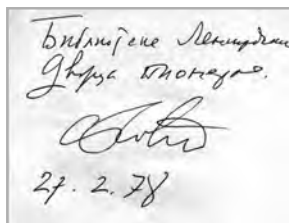 Библиотеке Ленинградского
Дворца пионеров.
27.2.78